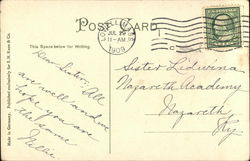 POST CARD
This Space below for Writing.
LOWELL, MASS.
JUL
11-AM
1909
Dear Sister, All
are well and we
hope you are
the same
Nellie
Sister Lidwina
Nazareth Academy
Nazareth
Ky.
Made in Germany. Published exclusively for